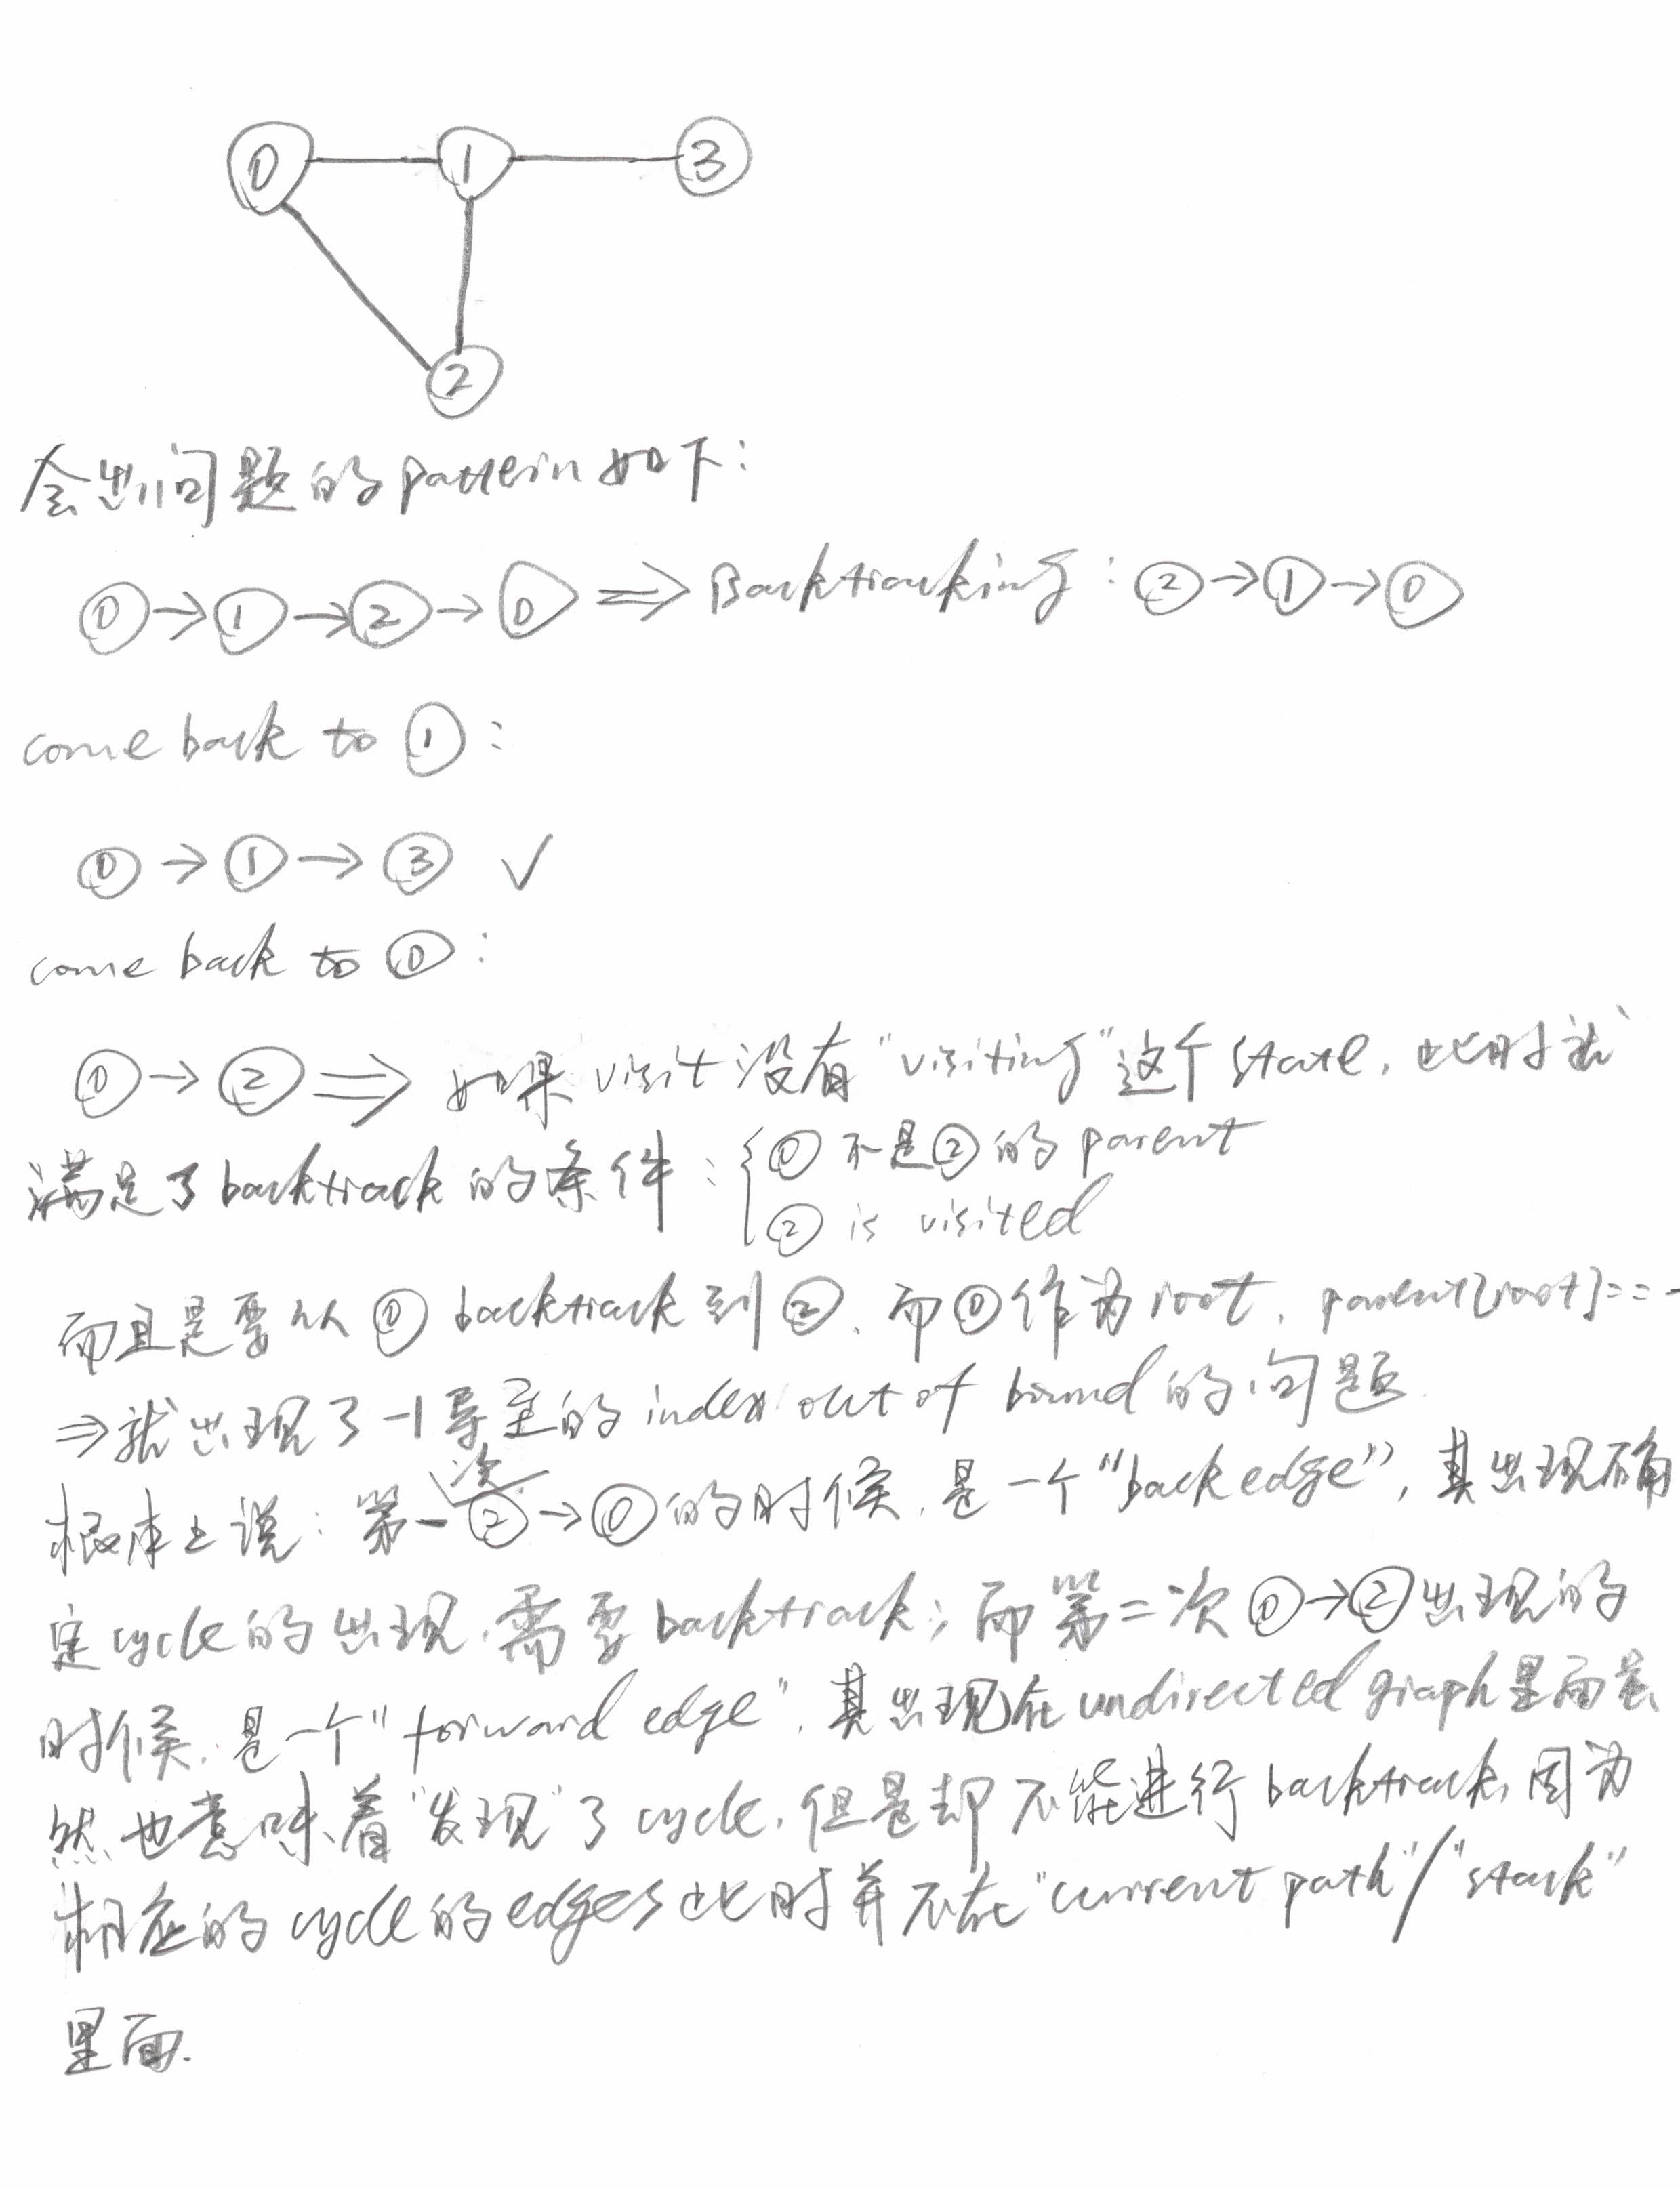 0 1 3
2
会出问题的pattern如下:
0→1→2→0 ⇒ Backtracking: 2→1→0
come back to 1:
0→1→3 ✓
come back to 0:
0→2 ⇒ 如果visit没有"visiting"这个state, 此时就
满足了backtrack的条件: { 0不是2的parent
2 is visited
而且是要从0 backtrack到2, 而0作为root, parent[root]==-
⇒就出现了-1导致的index out of bound的问题
根本上说: 第一次2→0的时候, 是一个"back edge", 其出现确
定cycle的出现, 需要backtrack; 而第二次0→2出现的
时候, 是一个"forward edge", 其出现在undirected graph里面虽
然也意味着"发现"了cycle, 但是却不能进行backtrack, 因为
相应的cycle的edges此时并不在"current path"/"stack"
里面.